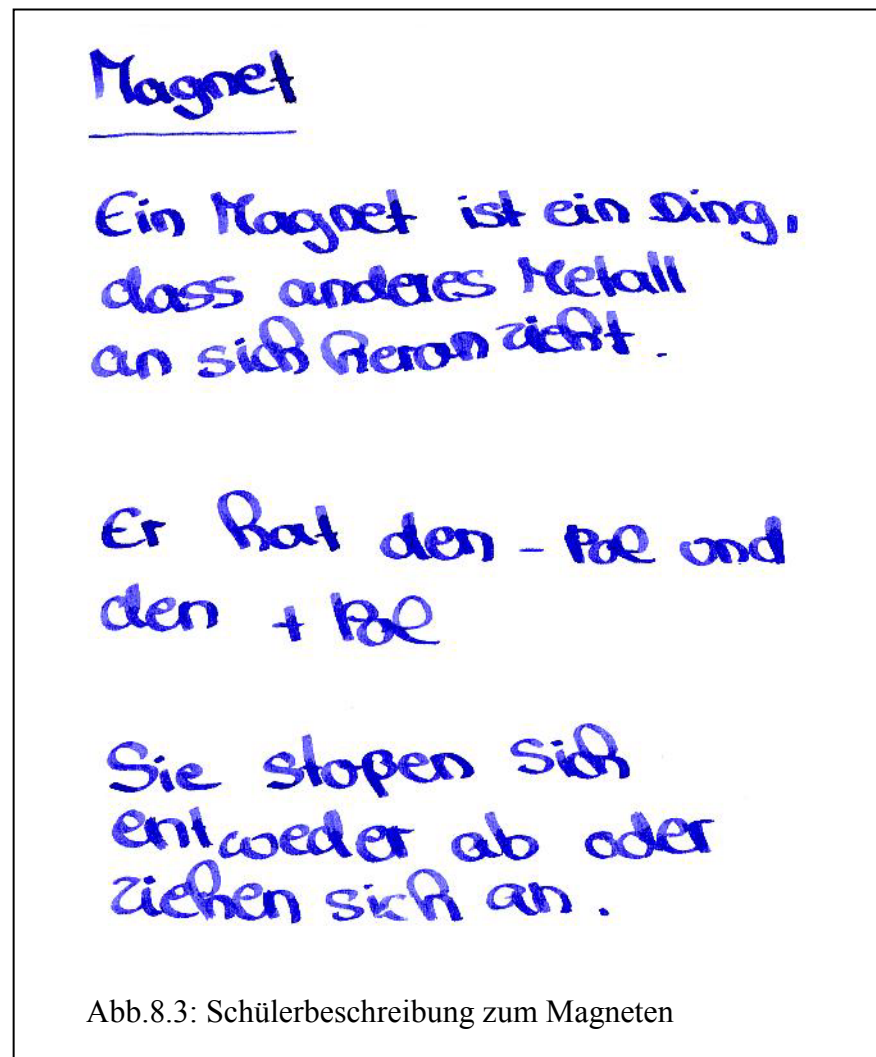 Magnet
Ein Magnet ist ein Ding,
dass anderes Metall
an sich heranzieht.
Er hat den - Pol und
den + Pol
Sie stoßen sich
entweder ab oder
ziehen sich an.
Abb.8.3: Schülerbeschreibung zum Magneten